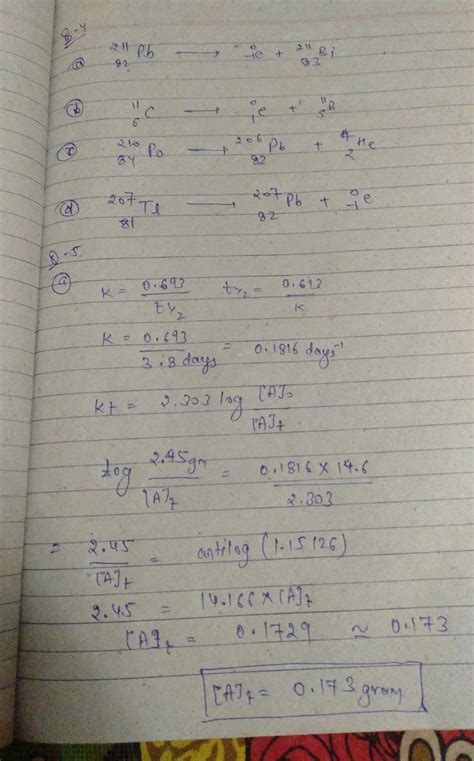 Q-4
(a) ²¹¹₈₂Pb → ⁰₋₁e + ²¹¹₈₃Bi
(b) ¹¹₆C → ⁰₁e + ¹¹₅B
(c) ²¹⁰₈₄Po → ²⁰⁶₈₂Pb + ⁴₂He
(d) ²⁰⁷₈₁Tl → ²⁰⁷₈₂Pb + ⁰₋₁e
Q-5
(a)
K = 0.693 / t1/2 t1/2 = 0.693 / K
K = 0.693 / 3.8 days = 0.1816 days⁻¹
Kt = 2.303 log [A]₀ / [A]t
log 2.45gm / [A]t = 0.1816 × 14.6 / 2.303
= 2.45 / [A]t = antilog (1.15126)
2.45 = 14.166 × [A]t
[A]t = 0.1729 ≃ 0.173
[A]t = 0.173 gram